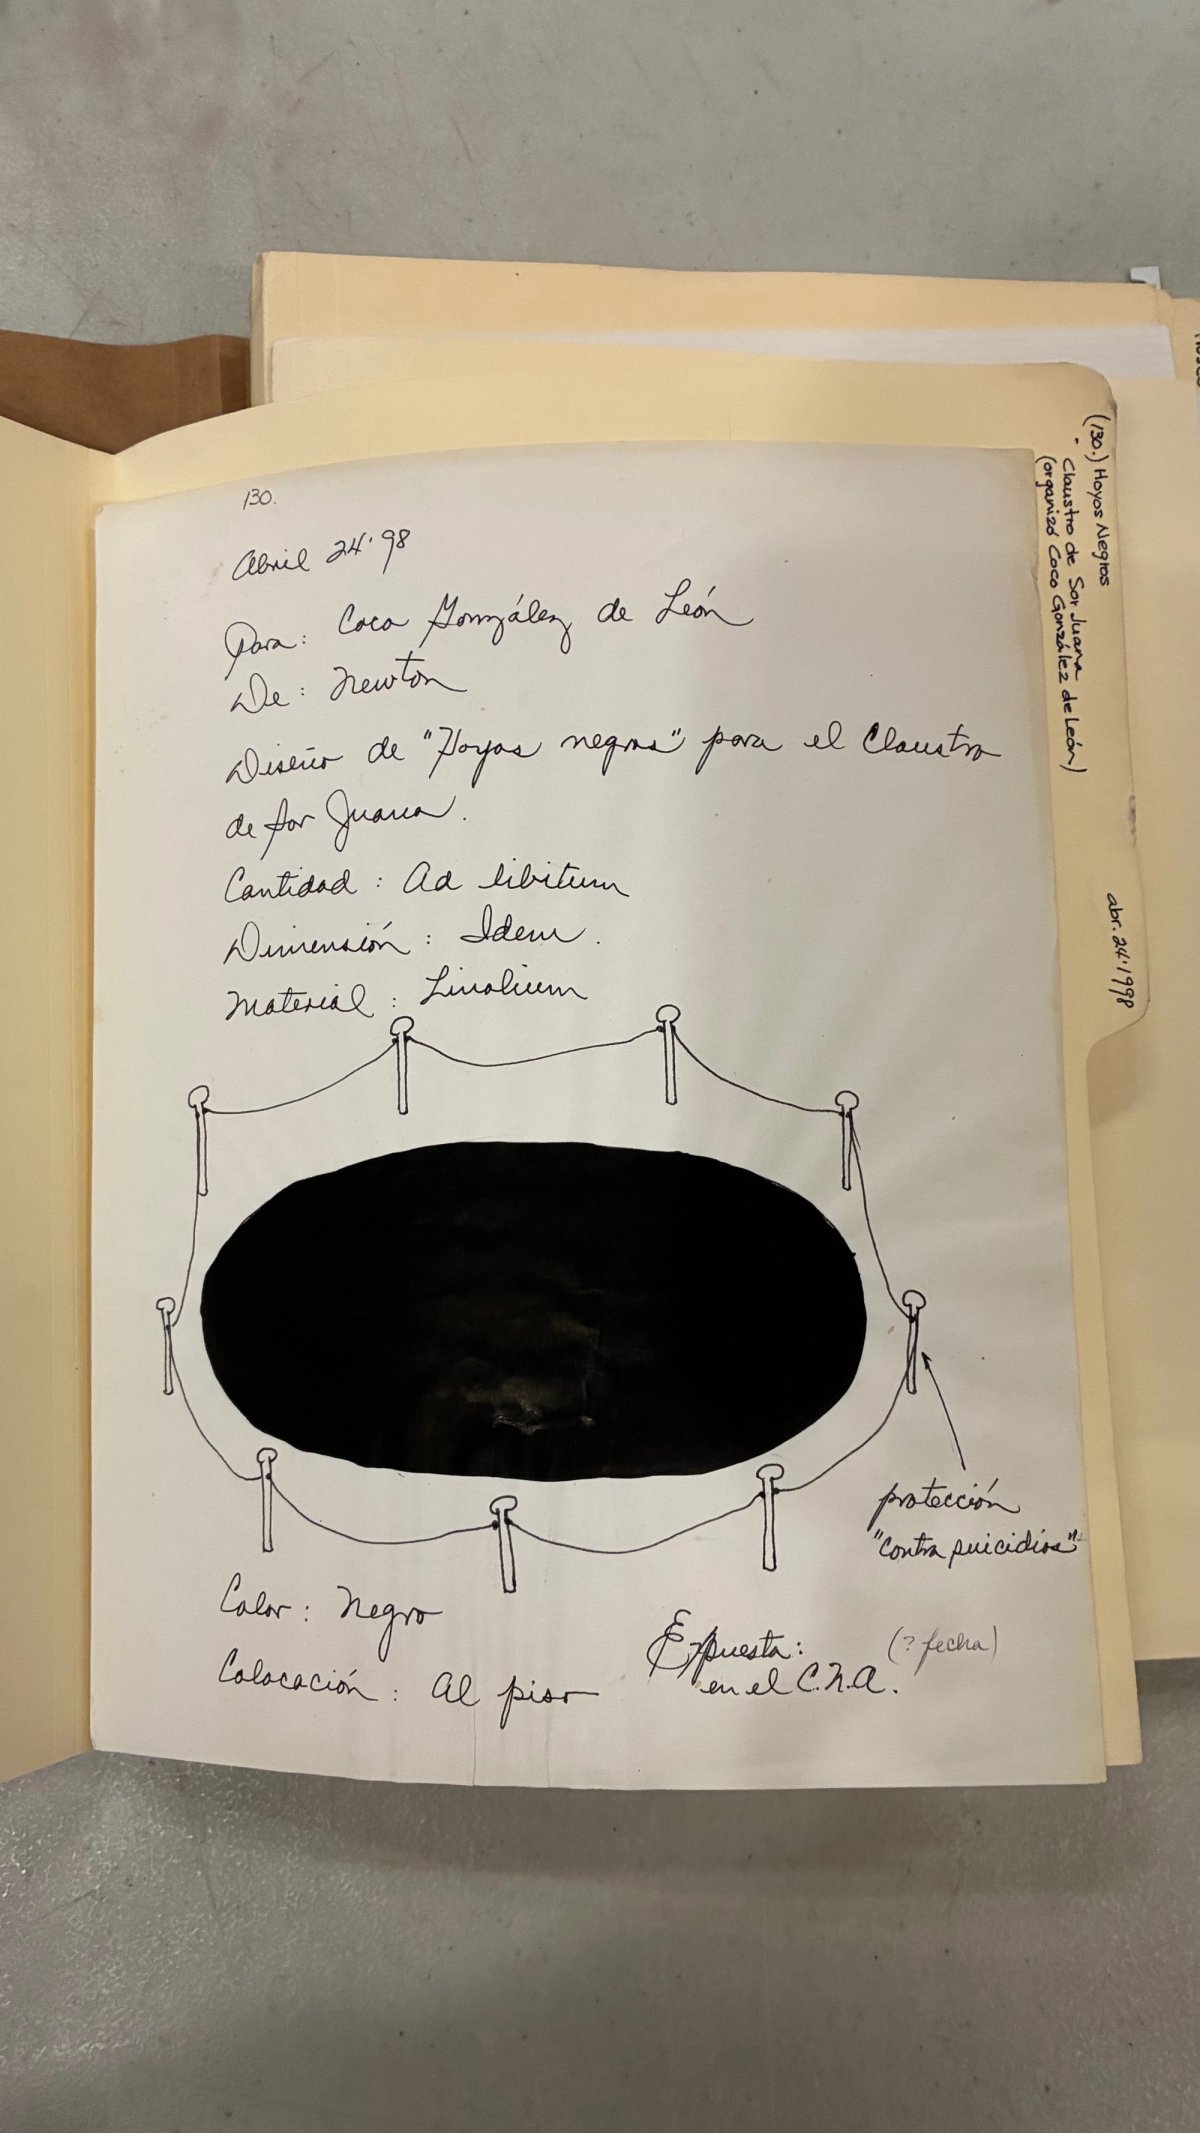 130.
Abril 24'98
Para: Coco González de León
De: Newton
Diseño de "Hoyos negros" para el Claustro
de Sor Juana.
Cantidad: Ad libitum
Dimensión: Idem.
Material: Linolium
protección
"contra suicidios"
Color: Negro
Colocación: Al piso
Expuesta: (? fecha)
en el C.N.A.
(130.) Hoyos Negros
· Claustro de Sor Juana
(organizó Coco González de León)
abr. 24'1998